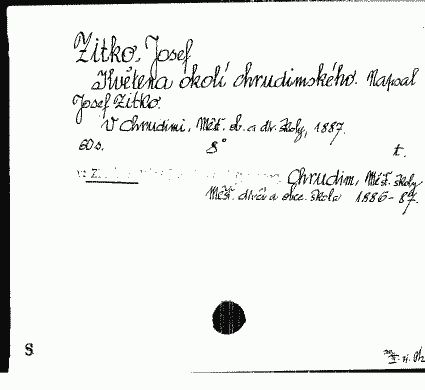 Zitko, Josef
Květena okolí chrudimského. Napsal
Josef Zitko.
V Chrudimi, Měšť. ob. a dív. školy, 1887.
60 s. 8° t.
Chrudim, Měšť. školy
Měšť. dívčí a obec. škola 1886-87.
S